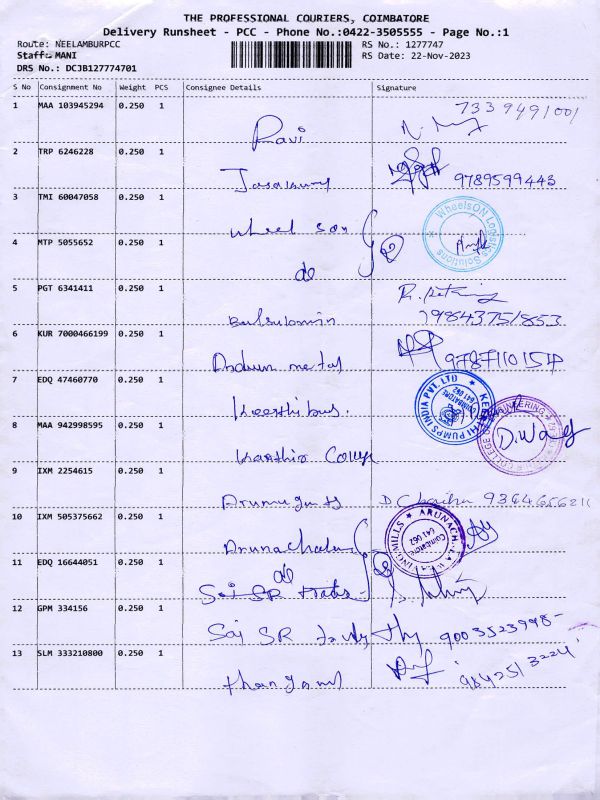 THE PROFESSIONAL COURIERS, COIMBATORE
Delivery Runsheet - PCC - Phone No.:0422-3505555 - Page No.:1
Route: NEELAMBURPCC RS No.: 1277747
Staff: MANI RS Date: 22-Nov-2023
DRS No.: DCJB127774701
S No Consignment No Weight PCS Consignee Details Signature
1 MAA 103945294 0.250 1 7339491001
Ravi
2 TRP 6246228 0.250 1
9789599443
3 TMI 60047058 0.250 1
wheel son WheelsON Logistics Solutions
4 MTP 5055652 0.250 1
do
5 PGT 6341411 0.250 1
9843751853
6 KUR 7000466199 0.250 1
9787110154
7 EDQ 47460770 0.250 1
PUMPS INDIA PVT. LTD COIMBATORE 641 062
8 MAA 942998595 0.250 1
College ENGINEERING COLLEGE
9 IXM 2254615 0.250 1
10 IXM 505375662 0.250 1
ARUNACHALA MILLS Coimbatore 641 062
11 EDQ 16644051 0.250 1
do
Sai SR
12 GPM 334156 0.250 1
Sai SR 9003523998
13 SLM 333210800 0.250 1
9842513224